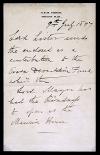 9th July 1897
Lord Lister sends
the enclosed as a
contribution to the
Fund which the
Lord Mayor has
had the kindness
to open at the
Mansion House